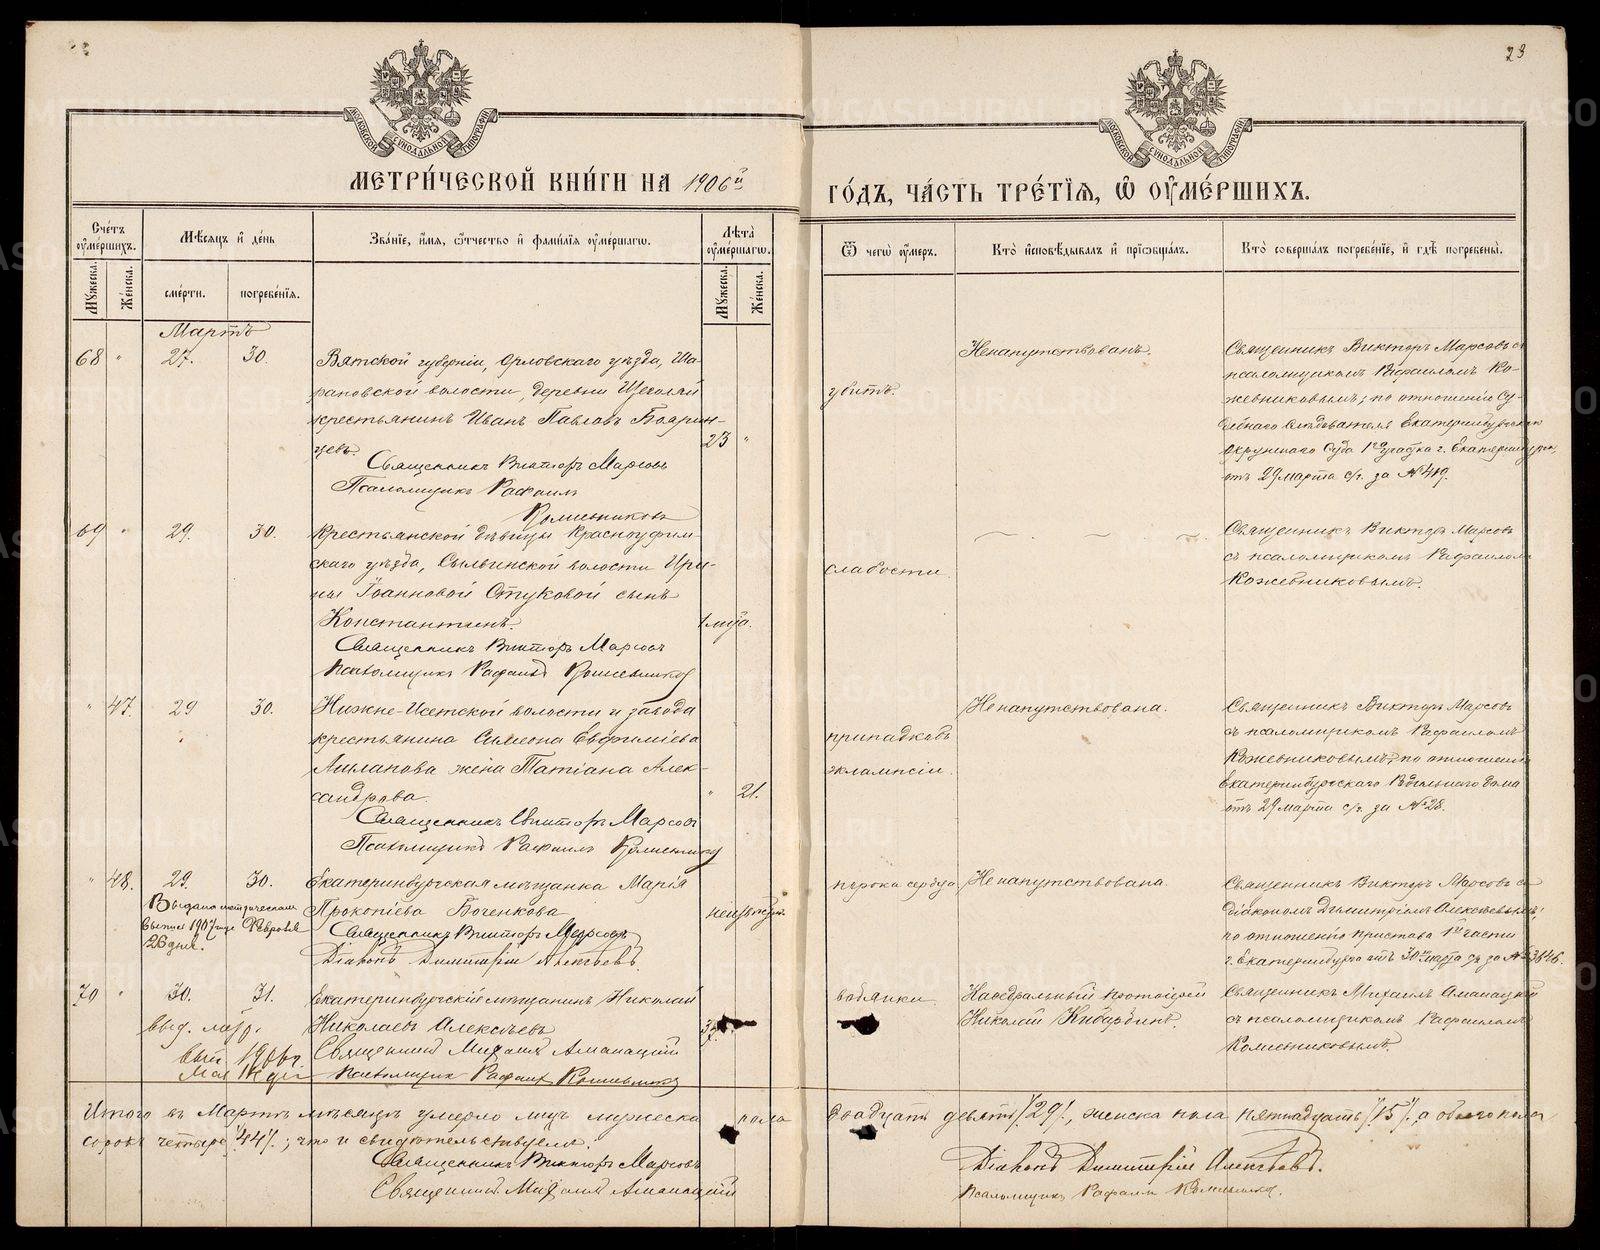 23
МОСКОВСКОЙ СѴНОДАЛЬНОЙ ТИПОГРАФІИ
МОСКОВСКОЙ СѴНОДАЛЬНОЙ ТИПОГРАФІИ
МЕТРИ́ЧЕСКОЙ КНИ́ГИ НА 1906й
ГО́ДЪ, ЧА́СТЬ ТРЕ́ТІѦ, Ѡ ОУ҆МЕ́РШИХЪ.
Сче́тъ оу҆ме́ршихъ.
Му́жеска.
Же́нска.
Мѣ́сяцъ и҆ де́нь
сме́рти.
погребе́нїѧ.
Зва́нїе, и҆́мѧ, ѻ҆́тчество и҆ фами́лїѧ оу҆ме́ршагѡ.
Лѣ́та оу҆ме́ршагѡ.
Му́жеска.
Же́нска.
Ѿ чегѡ̀ оу҆́меръ.
Кто̀ и҆сповѣ́дывалъ и҆ прїѡбща́лъ.
Кто̀ соверша́лъ погребе́нїе, и҆ гдѣ̀ погребены̀.
Мартъ
68 " 27. 30.
Вятской губерніи, Орловскаго уѣзда, Ша-
рановской волости, деревни Щеголяй
крестьянинъ Иванъ Павловъ Боярин-
цевъ.
23 "
Священникъ Викторъ Марсовъ
Псаломщикъ Рафаилъ
Кожевниковъ
убитъ.
Ненапутствованъ.
Священникъ Викторъ Марсовъ съ
псаломщикомъ Рафаиломъ Ко-
жевниковымъ; по отношенію Су-
дебнаго Слѣдователя Екатеринбургскаго
Окружнаго Суда 1го участка г. Екатеринбурга,
отъ 29 марта с/г. за № 419.
69 " 29. 30.
Крестьянской дѣвицы Красноуфим-
скаго уѣзда, Сылвинской волости Ири-
ны Іоанновой Стуковой сынъ
Константинъ.
1 мѣс.
Священникъ Викторъ Марсовъ
Псаломщикъ Рафаилъ Кожевниковъ
слабости.
Священникъ Викторъ Марсовъ
съ псаломщикомъ Рафаиломъ
Кожевниковымъ.
" 47. 29 30.
Нижне-Исетской волости и завода
крестьянина Симеона Евфиміева
жена Татіана Алек-
сандрова.
" 21.
Священникъ Викторъ Марсовъ
Псаломщикъ Рафаилъ Кожевниковъ
припадковъ
эклампсіи.
Ненапутствована.
Священникъ Викторъ Марсовъ
съ псаломщикомъ Рафаиломъ
Кожевниковымъ; по отношенію
Екатеринбургскаго Родильнаго дома
отъ 29 марта с/г. за № 28.
" 48. 29. 30.
Екатеринбургская мѣщанка Марія
Прокопіева Боченкова
неизвѣстн.
Священникъ Викторъ Марсовъ
Діаконъ Димитрій Алексѣевъ.
Выдана метрическая
выпись 1907 года Февраля
26 дня.
порока сердца
Ненапутствована.
Священникъ Викторъ Марсовъ съ
діакономъ Димитріемъ Алексѣевымъ;
по отношенію пристава 1й части
г. Екатеринбурга отъ 30го марта с/г за № 3646.
70 " 30. 31.
Екатеринбургскій мѣщанинъ Николай
Николаевъ Алексѣевъ
Священникъ Михаилъ Аманацкій
Псаломщикъ Рафаилъ Кожевниковъ
водянки.
Каѳедральный протоіерей
Николай Кибардинъ.
Священникъ Михаилъ Аманацкій
съ псаломщикомъ Рафаиломъ
Кожевниковымъ.
Итого въ Мартѣ мѣсяцѣ умерло лицъ мужеска пола двадцать девять /29/, женска пола пятнадцать /15/, а обоего пола
сорокъ четыре /44/; что и свидѣтельствуемъ:
Священникъ Викторъ Марсовъ
Священникъ Михаилъ Аманацкій
Діаконъ Димитрій Алексѣевъ.
Псаломщикъ Рафаилъ Кожевниковъ.
METRIKI.GASO-URAL.RU